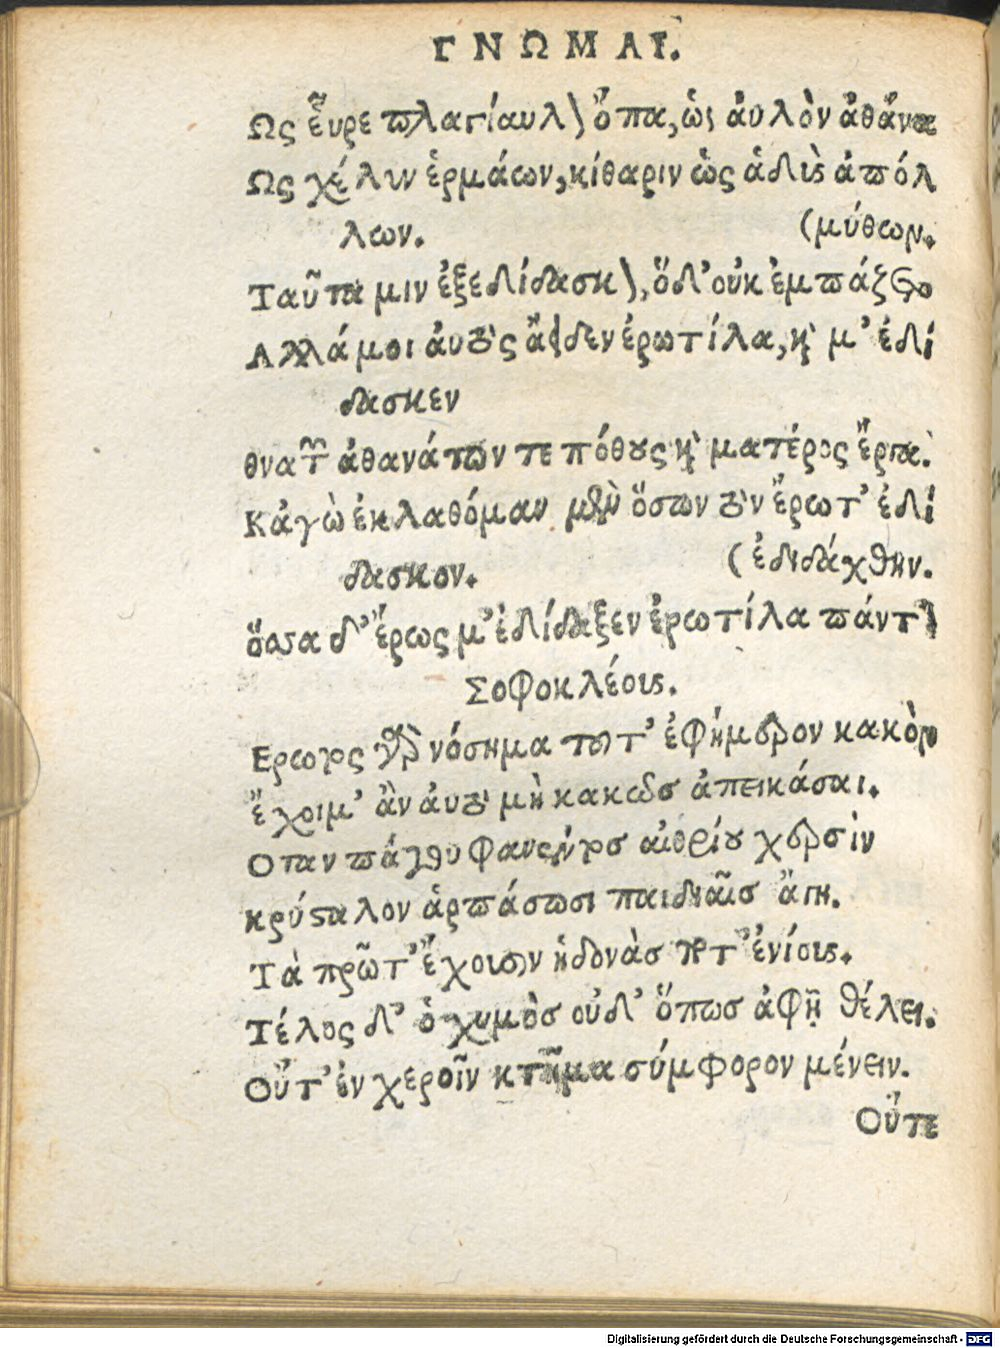 ΓΝΩΜΑΙ.
Ως εὗρε πλαγίαυλον ὅπα, ὡς αὐλὸν ἀθάνα
Ως χέλυν ἑρμάων, κίθαριν ὡς ἁδὺς ἀπόλ
λων. (μύθων.
Ταῦτα μιν ἐξεδίδασκον, ὅδ' οὐκ ἐμπάζετο
Αλλά μοι αὐτὸς ἄειδεν ἐρωτίλα, καὶ μ' ἐδί
δασκεν
θνατῶν ἀθανάτων τε πόθους καὶ ματέρος ἔργα.
Κἀγὼ ἐκλαθόμαν μὲν ὅσων τὸν ἔρωτ' ἐδί
δασκον. (ἐδιδάχθην.
ὅσσα δ' ἔρως μ' ἐδίδαξεν ἐρωτίλα πάντ'
Σοφοκλέους.
Ερωτος γὰρ νόσημα τοῦτ' ἐφήμερον κακὸν
ἔχοιμ' ἂν αὐτὸ μὴ κακῶς ἀπεικάσαι.
Οταν πάγου φανέντος αἰθρίου χερσὶν
κρύσταλον ἁρπάσωσι παιδιαῖς ἄγη.
Τὰ πρῶτ' ἔχουσιν ἡδονὰς ἐνίοις.
Τέλος δ' ὁ χυμὸς οὐδ' ὅπως ἀφῇ θέλει.
Οὔτ' ἐν χεροῖν κτῆμα σύμφορον μένειν.
Οὔτε
Digitalisierung gefördert durch die Deutsche Forschungsgemeinschaft - DFG